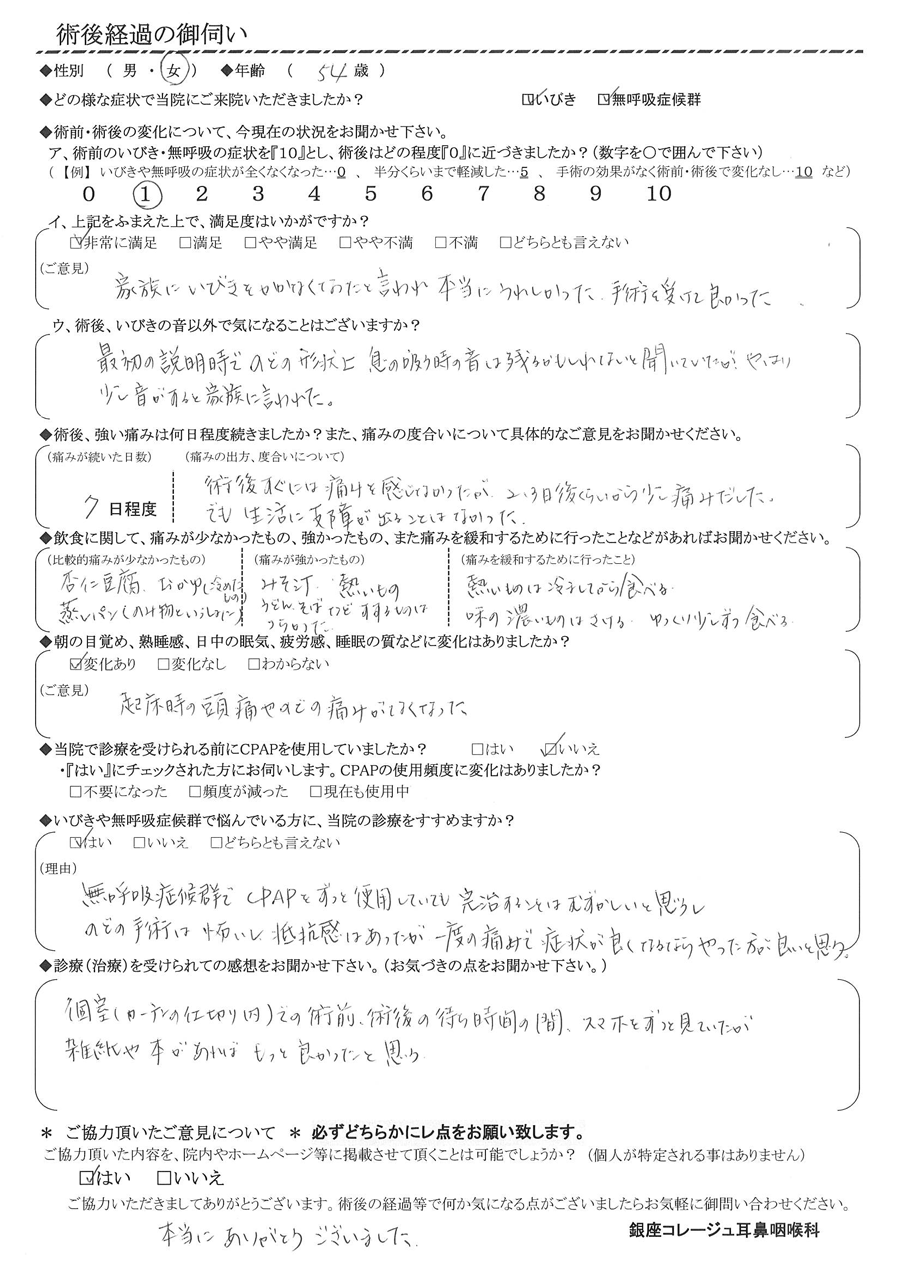 術後経過の御伺い
◆性別 ( 男 ・ 女 ) ◆年齢 ( 54 歳 )
◆どの様な症状で当院にご来院いただきましたか? ☑いびき ☑無呼吸症候群
◆術前・術後の変化について、今現在の状況をお聞かせ下さい。
ア、術前のいびき・無呼吸の症状を『10』とし、術後はどの程度『0』に近づきましたか?(数字を〇で囲んで下さい)
(【例】 いびきや無呼吸の症状が全くなくなった…0 、 半分くらいまで軽減した…5 、 手術の効果がなく術前・術後で変化なし…10 など)
0 1 2 3 4 5 6 7 8 9 10
イ、上記をふまえた上で、満足度はいかがですか?
☑非常に満足 □満足 □やや満足 □やや不満 □不満 □どちらとも言えない
(ご意見)
家族にいびきをかかなくなったと言われ 本当にうれしかった。手術を受けて良かった
ウ、術後、いびきの音以外で気になることはございますか?
最初の説明時で のどの形状上 息の吸う時の音は残るかもしれないと聞いていたが やはり
少し音がすると家族に言われた。
◆術後、強い痛みは何日程度続きましたか?また、痛みの度合いについて具体的なご意見をお聞かせください。
(痛みが続いた日数) (痛みの出方、度合いについて)
術後すぐには痛みを感じなかったが、2、3日後くらいから少し痛みだした。
7 日程度 でも 生活に支障が出ることはなかった。
◆飲食に関して、痛みが少なかったもの、強かったもの、また痛みを緩和するために行ったことなどがあればお聞かせください。
(比較的痛みが少なかったもの) (痛みが強かったもの) (痛みを緩和するために行ったこと)
杏仁豆腐、おかゆ(冷めたもの) みそ汁、熱いもの 熱いものは冷ましてから食べる
蒸しパン(のみ物といっしょに) うどん、そばなど すするものはつらかった 味の濃いものはさける ゆっくり少しずつ食べる
◆朝の目覚め、熟睡感、日中の眠気、疲労感、睡眠の質などに変化はありましたか?
☑変化あり □変化なし □わからない
(ご意見)
起床時の頭痛やのどの痛みがなくなった
◆当院で診療を受けられる前にCPAPを使用していましたか? □はい ☑いいえ
・『はい』にチェックされた方にお伺いします。CPAPの使用頻度に変化はありましたか?
□不要になった □頻度が減った □現在も使用中
◆いびきや無呼吸症候群で悩んでいる方に、当院の診療をすすめますか?
☑はい □いいえ □どちらとも言えない
(理由)
無呼吸症候群で CPAPをずっと使用していても 完治することはむずかしいと思うし
のどの手術は怖いし、抵抗感はあったが 一度の痛みで症状が良くなるならやった方が良いと思う。
◆診療(治療)を受けられての感想をお聞かせ下さい。(お気づきの点をお聞かせ下さい。)
個室(カーテンの仕切り内)での術前、術後の待ち時間の間、スマホをずっと見ていたが
雑紙や本があれば もっと良かったと思う
* ご協力頂いたご意見について * 必ずどちらかにレ点をお願い致します。
ご協力頂いた内容を、院内やホームページ等に掲載させて頂くことは可能でしょうか? (個人が特定される事はありません)
☑はい □いいえ
ご協力いただきましてありがとうございます。術後の経過等で何か気になる点がございましたらお気軽に御問い合わせください。
本当に ありがとう ございました。 銀座コレージュ耳鼻咽喉科